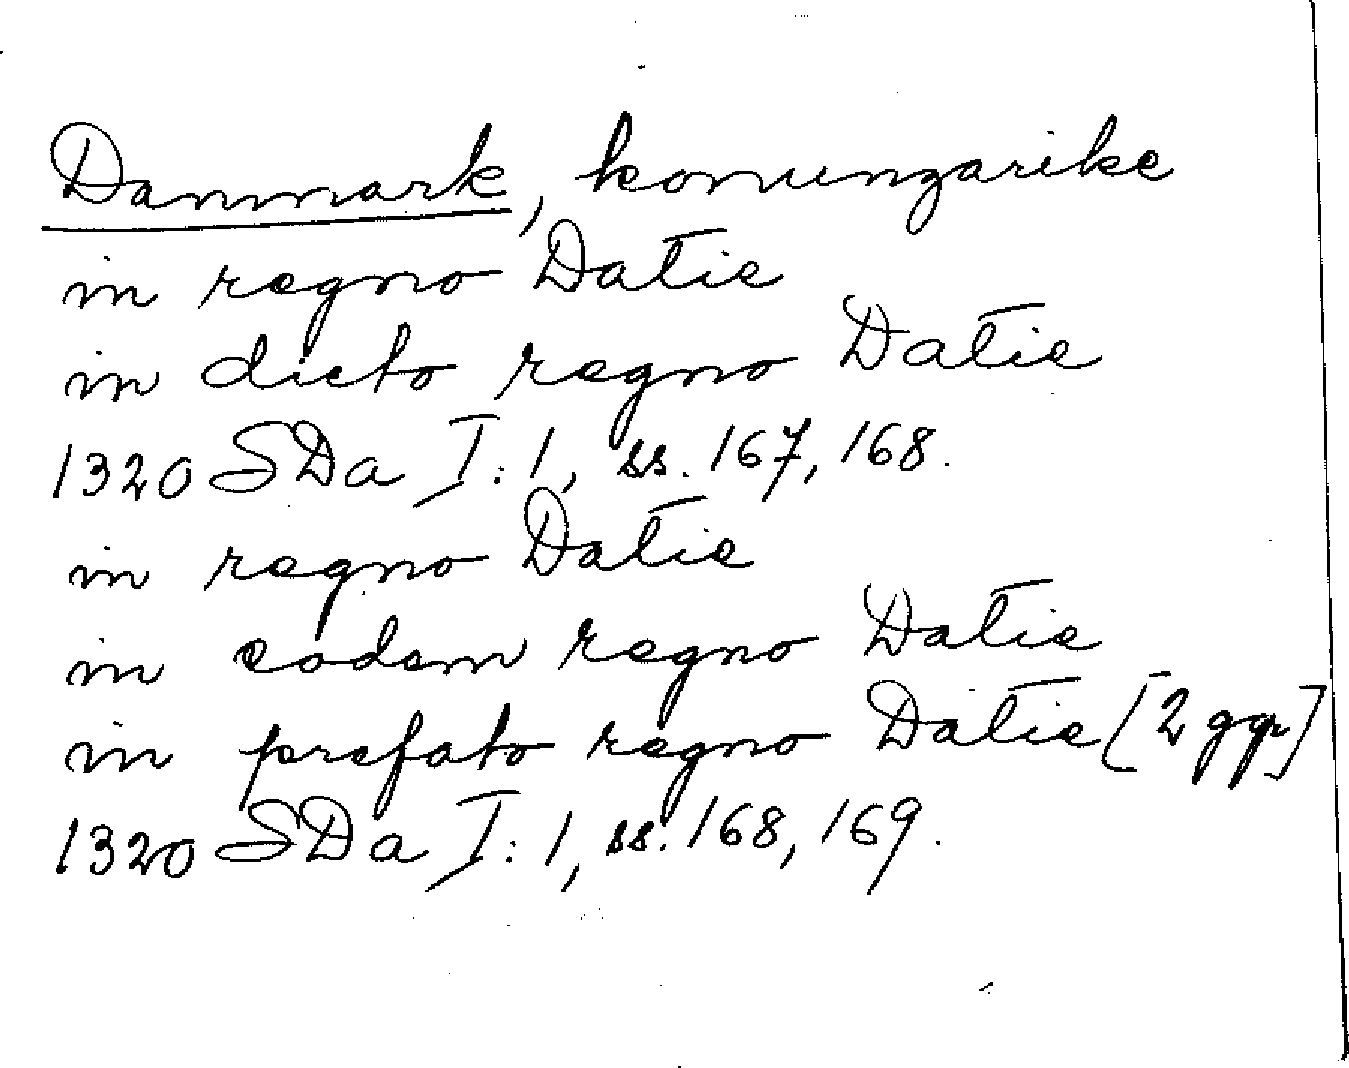 Danmark, konungarike
in regno Datie
in dicto regno Datie
1320 SDa I:1, ss. 167, 168.
in regno Datie
in eodem regno Datie
in prefato regno Datie [2 ggr]
1320 SDa I:1, ss. 168, 169.